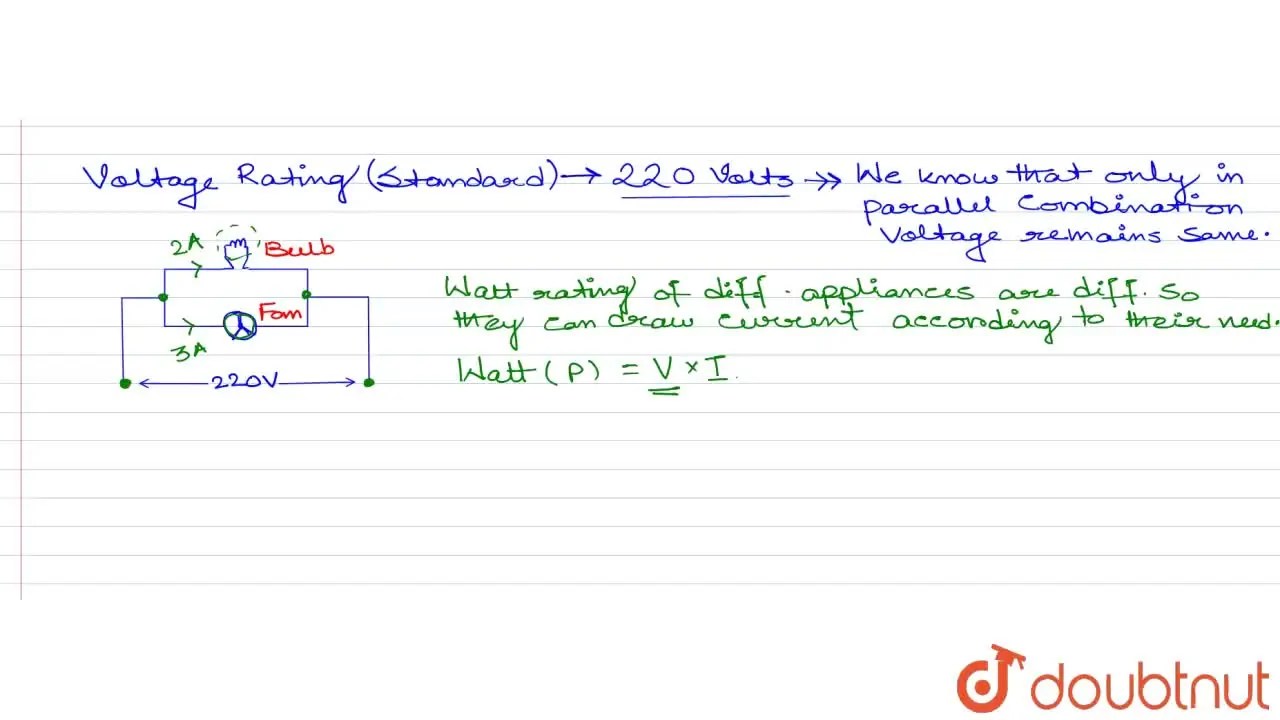 Voltage Rating (Standard) → 220 Volts →> We know that only in
parallel combination
Voltage remains same.
2A
Bulb
Fan
3A
220V
Watt rating of diff. appliances are diff. So
they can draw current according to their need.
Watt (P) = V × I.
doubtnut